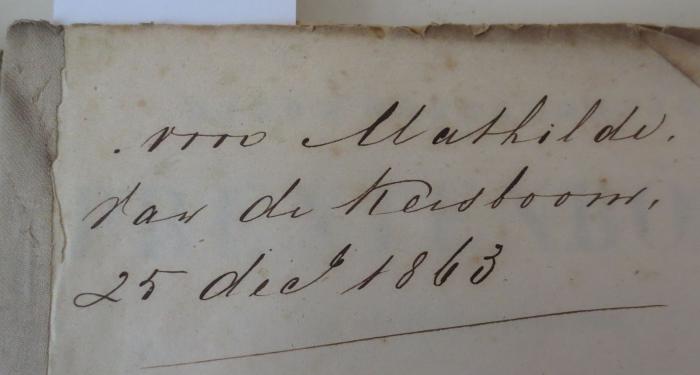 voor Mathilde.
van de Kersboom,
25 decb 1863